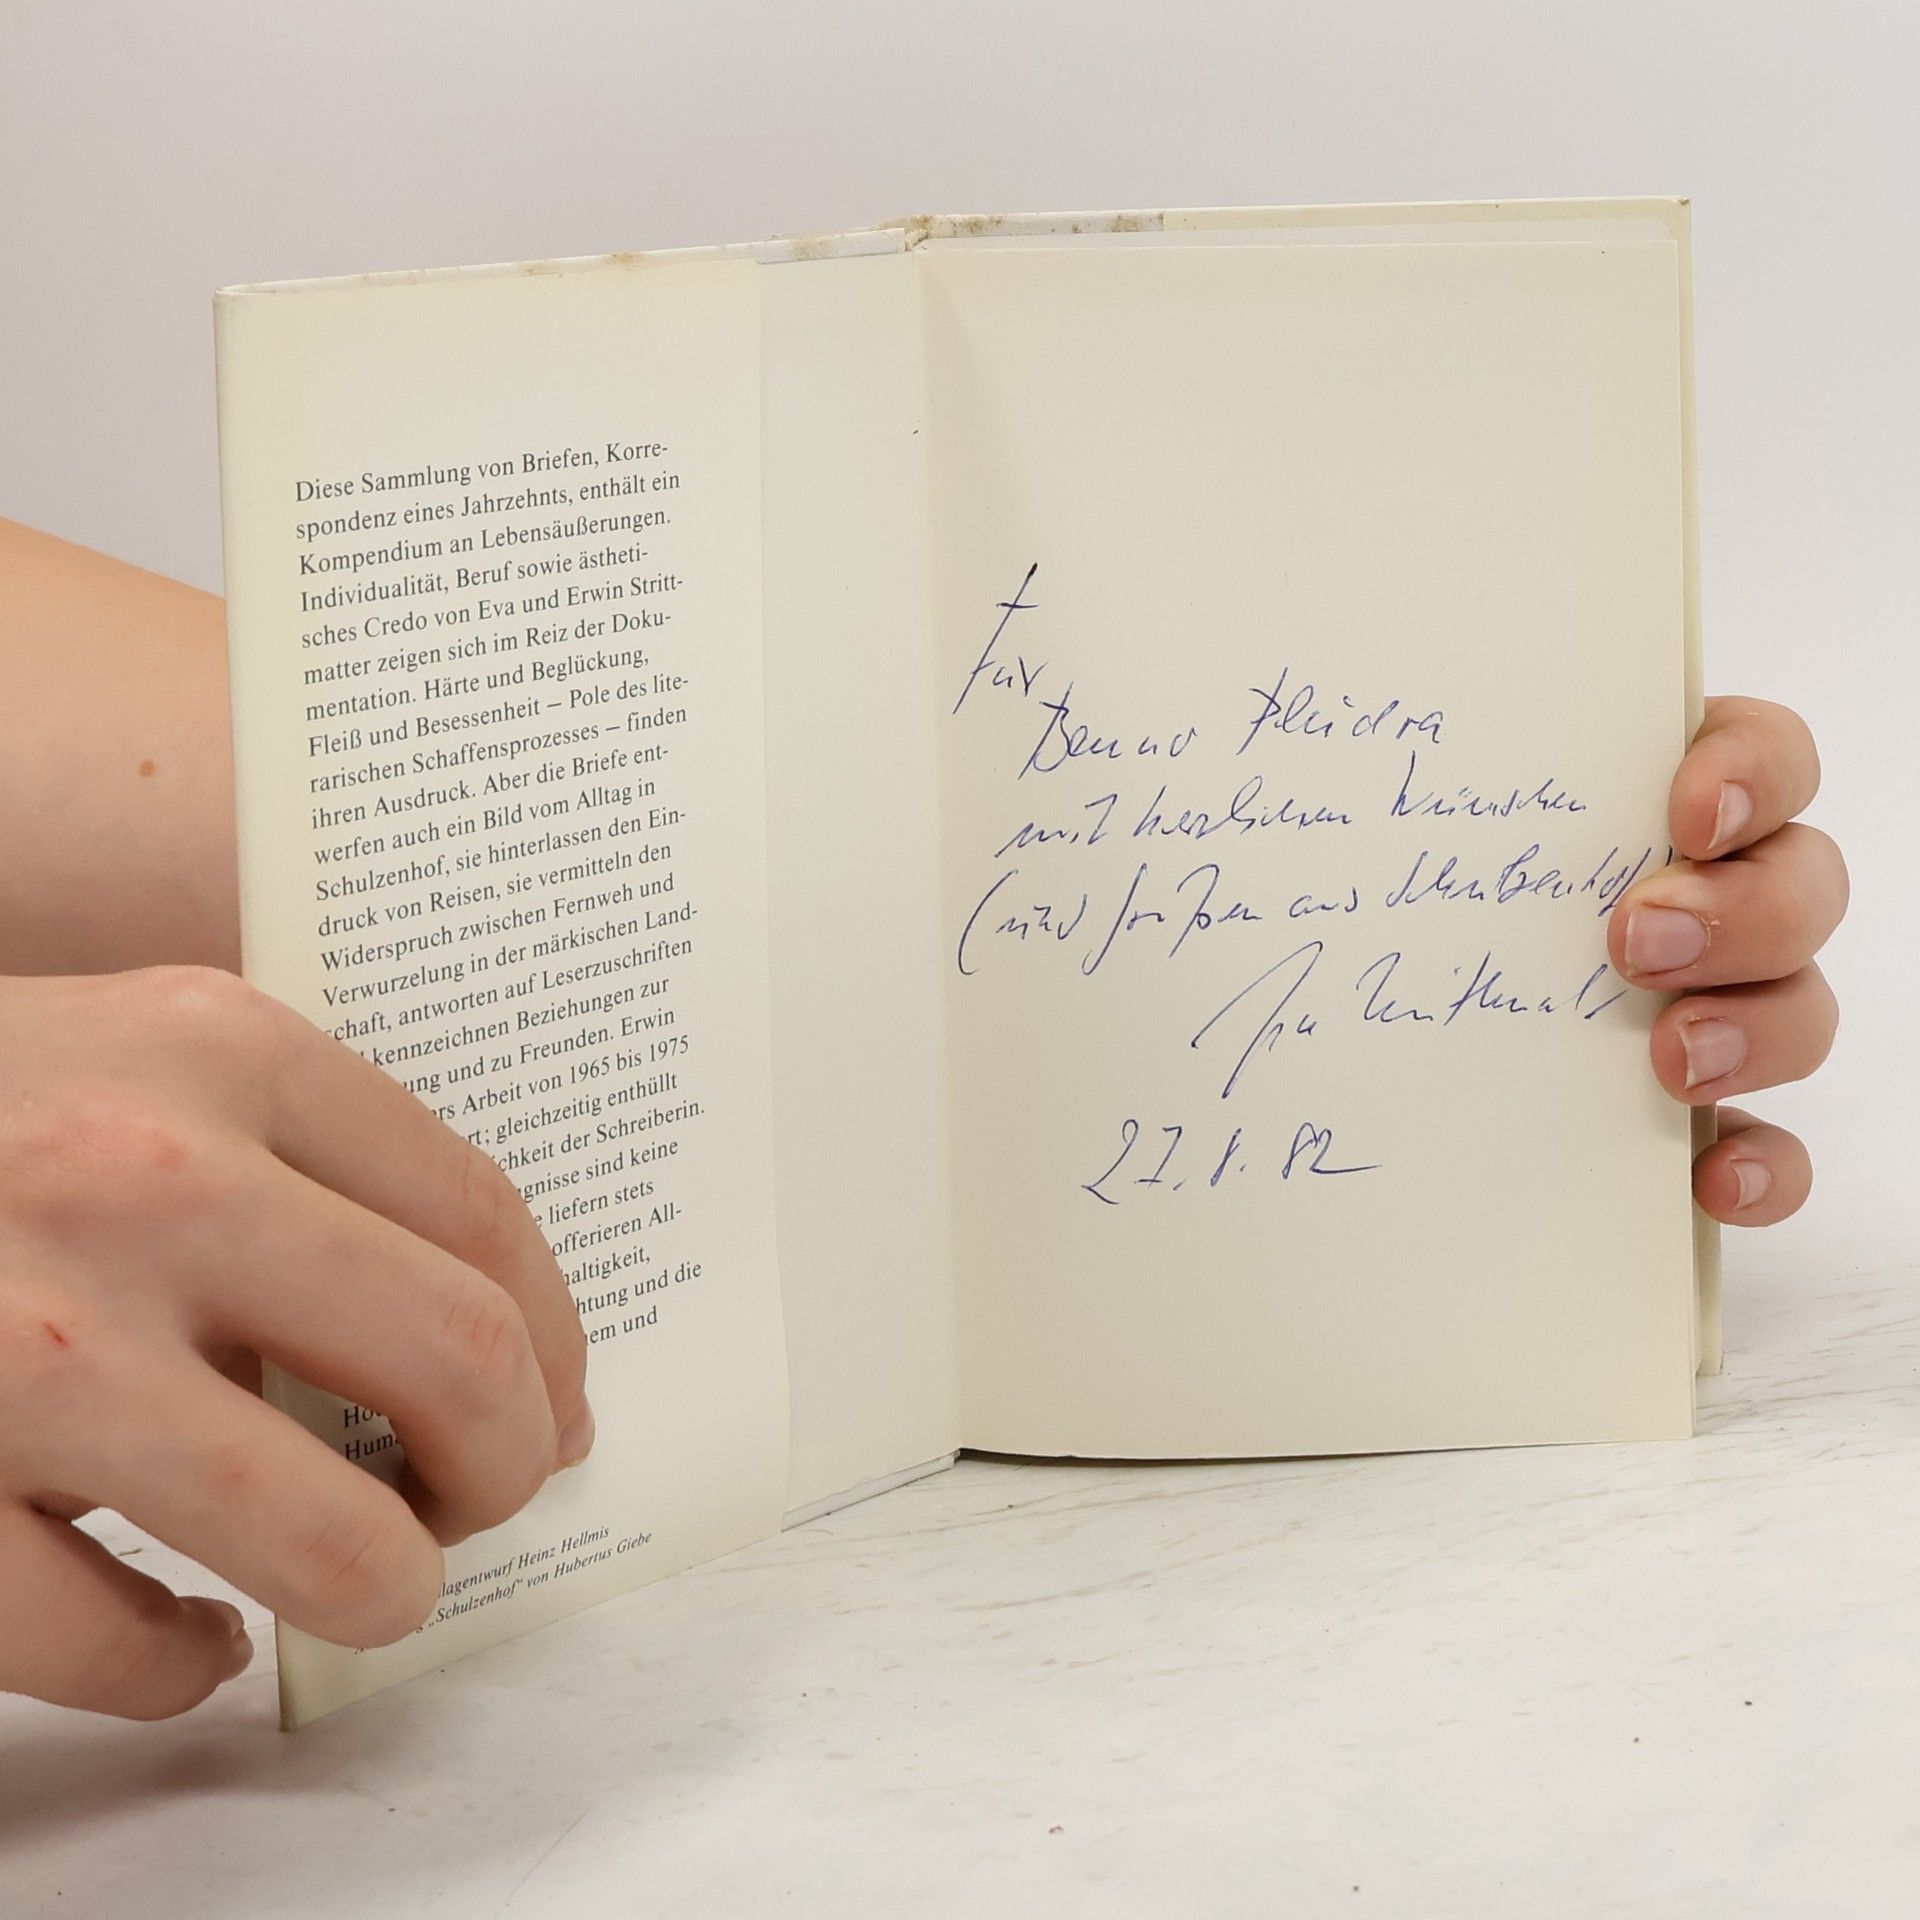 Diese Sammlung von Briefen, Korre-
spondenz eines Jahrzehnts, enthält ein
Kompendium an Lebensäußerungen.
Individualität, Beruf sowie ästheti-
sches Credo von Eva und Erwin Stritt-
matter zeigen sich im Reiz der Doku-
mentation. Härte und Beglückung,
Fleiß und Besessenheit – Pole des lite-
rarischen Schaffensprozesses – finden
ihren Ausdruck. Aber die Briefe ent-
werfen auch ein Bild vom Alltag in
Schulzenhof, sie hinterlassen den Ein-
druck von Reisen, sie vermitteln den
Widerspruch zwischen Fernweh und
Verwurzelung in der märkischen Land-
schaft, antworten auf Leserzuschriften
kennzeichnen Beziehungen zur
und zu Freunden. Erwin
Arbeit von 1965 bis 1975
gleichzeitig enthüllt
der Schreiberin.
sind keine
liefern stets
offerieren All-
und die
und
Heinz Hellmis
„Schulzenhof“ von Hubertus Giebe
Für
Benno Pludra
mit herzlichen Wünschen
(und Grüßen aus Schulzenhof)
27. 8. 82